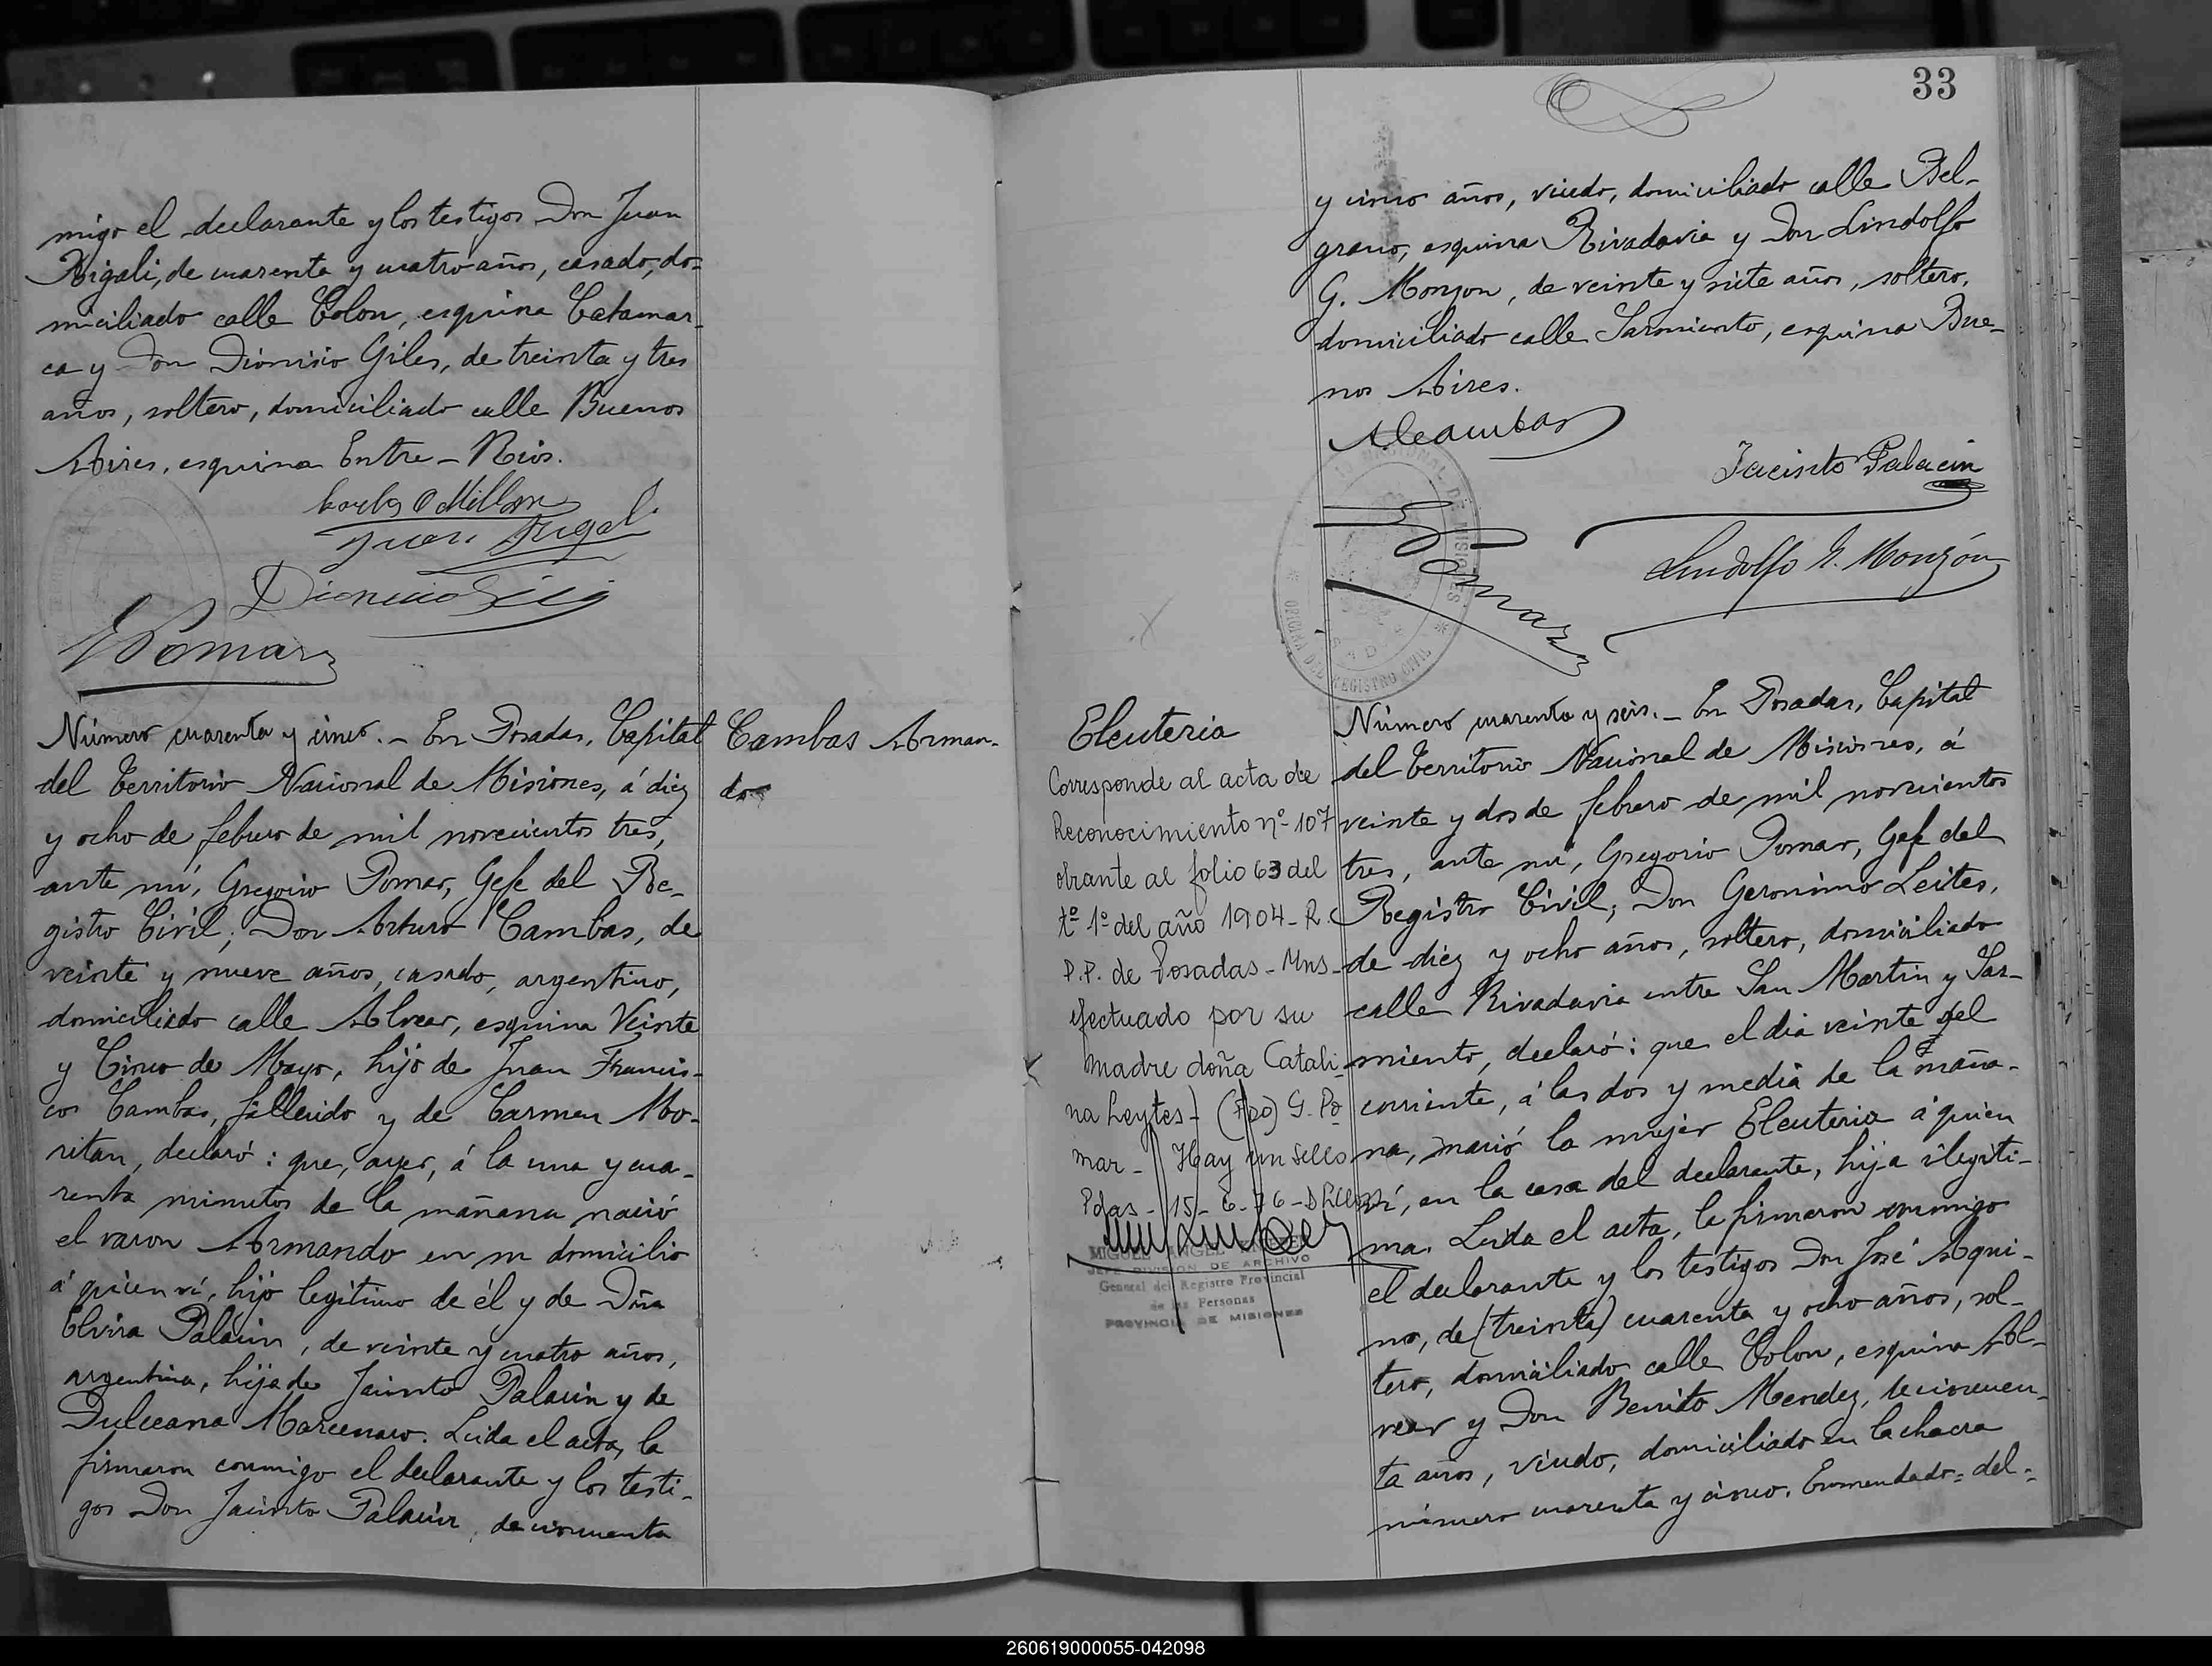 migo el declarante y los testigos Don Juan
Rigali, de cuarenta y cuatro años, casado, do-
miciliado calle Colon, esquina Catamar-
ca y Don Dionisio Giles, de treinta y tres
años, soltero, domiciliado calle Buenos
Aires, esquina Entre-Rios.
Juan Rigali
Dionicio
Pomar
Número cuarenta y cinco. - En Posadas, Capital
del Territorio Nacional de Misiones, á diez
y ocho de febrero de mil novecientos tres,
ante mí, Gregorio Pomar, Gefe del Re-
gistro Civil; Don Arturo Cambas, de
veinte y nueve años, casado, argentino,
domiciliado calle Alvear, esquina Veinte
y Cinco de Mayo, hijo de Juan Francis-
co Cambas, fallecido y de Carmen Mo-
ritan, declaró: que, ayer, á la una y cua-
renta minutos de la mañana nació
el varon Armando en su domicilio
á quien ví, hijo legítimo de él y de Doña
Elvira Palacin, de veinte y cuatro años,
argentina, hija de Jacinto Palacin y de
Dulceana Marcenaro. Leida el acta, la
firmaron conmigo el declarante y los testi-
gos Don Jacinto Palacin, de cincuenta
Cambas Arman-
do
33
y cinco años, viudo, domiciliado calle Bel-
grano, esquina Rivadavia y Don Lindolfo
G. Monzon, de veinte y siete años, soltero,
domiciliado calle Sarmiento, esquina Bue-
nos Aires.
ACambas
Jacinto Palacin
Pomar
Lindolfo G. Monzón
OFICINA DEL REGISTRO CIVIL
Eleuteria
Corresponde al acta de
Reconocimiento nº 107
obrante al folio 63 del
tº 1º del año 1904 - R.
P.P. de Posadas - Mns -
efectuado por su
madre doña Catali-
na Leytes - (Fdo) G. Po
mar - Hay un sello
Pdas - 15 - 6 - 76 -
MIGUEL ANGEL
JEFE DIVISION DE ARCHIVO
General del Registro Provincial
de las Personas
PROVINCIA DE MISIONES
Número cuarenta y seis. - En Posadas, Capital
del Territorio Nacional de Misiones, á
veinte y dos de febrero de mil novecientos
tres, ante mí, Gregorio Pomar, Gefe del
Registro Civil; Don Geronimo Leites,
de diez y ocho años, soltero, domiciliado
calle Rivadavia entre San Martin y Sar-
miento, declaró: que el dia veinte del
corriente, á las dos y media de la maña-
na, nació la mujer Eleuteria á quien
ví, en la casa del declarante, hija ilegíti-
ma. Leida el acta, la firmaron conmigo
el declarante y los testigos Don José Aqui-
no, de (treinta) cuarenta y ocho años, sol-
tero, domiciliado calle Colon, esquina Al-
vear y Don Benito Mendez, de cincuen-
ta años, viudo, domiciliado en la chacra
número cuarenta y cinco. Enmendado = del =
260619000055-042098